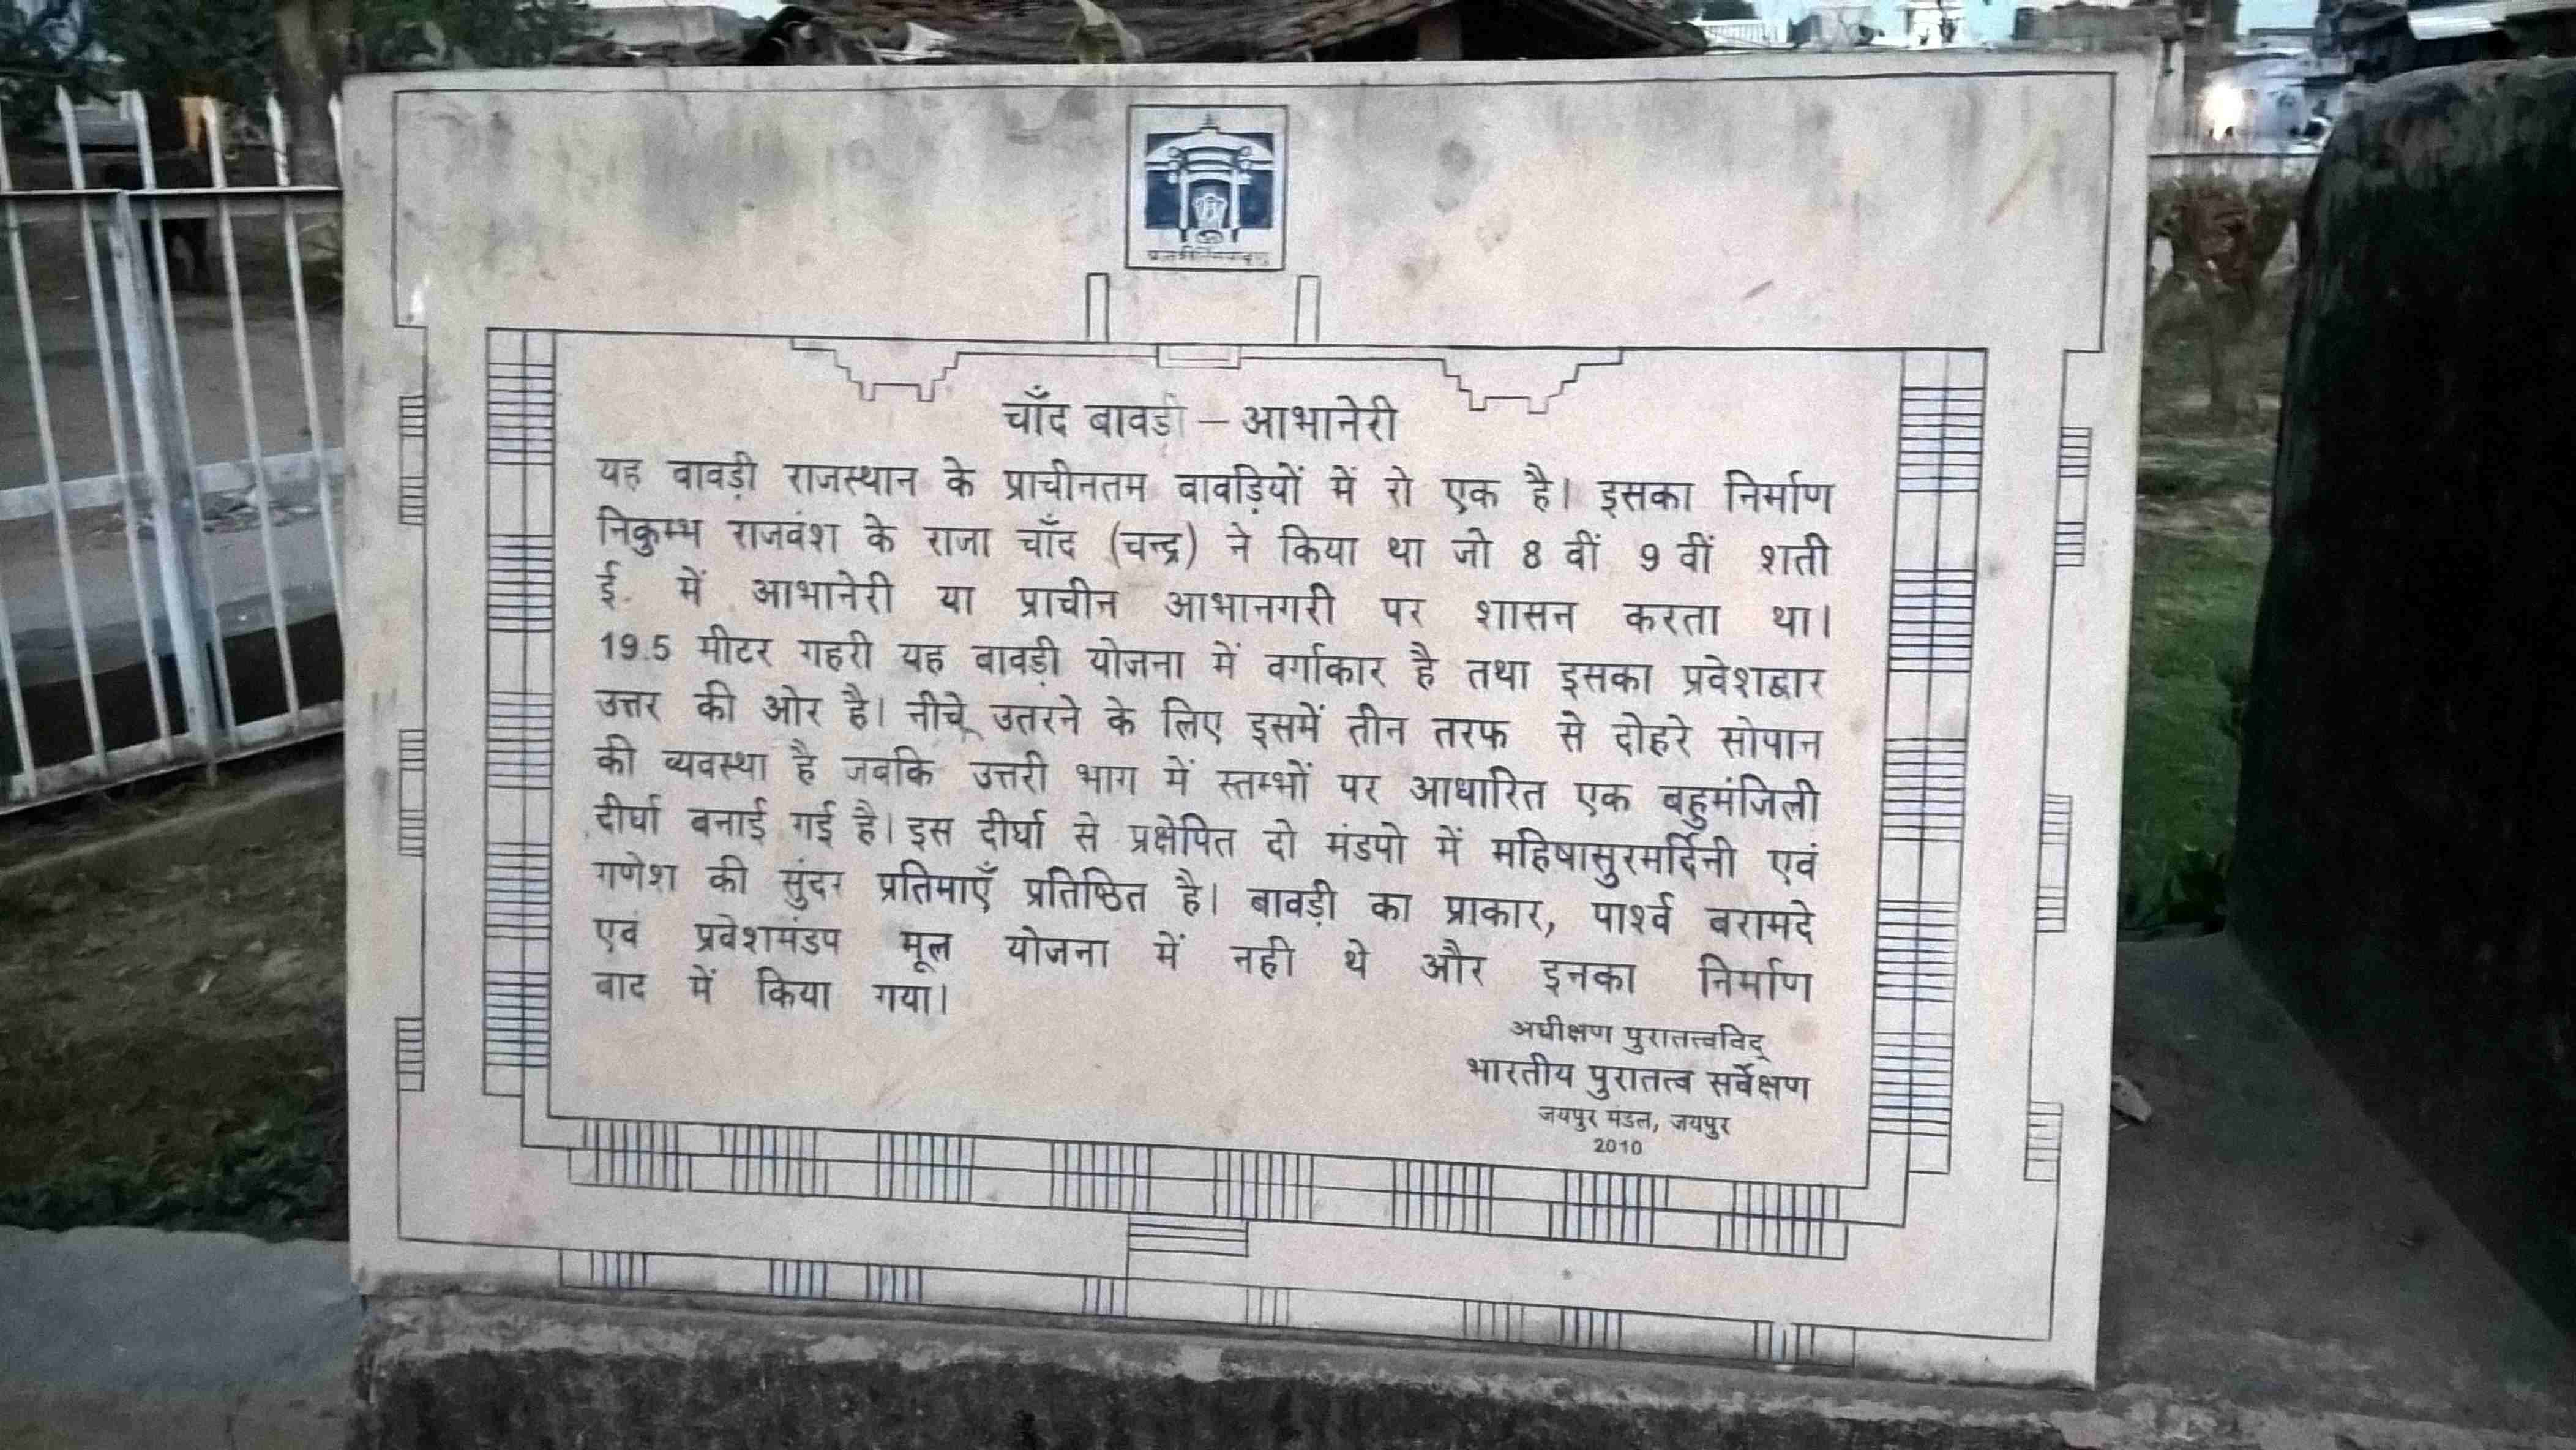 चाँद बावड़ी – आभानेरी
यह बावड़ी राजस्थान के प्राचीनतम बावड़ियों में से एक है। इसका निर्माण
निकुम्भ राजवंश के राजा चाँद (चन्द्र) ने किया था जो 8 वीं 9 वीं शती
ई. में आभानेरी या प्राचीन आभानगरी पर शासन करता था।
19.5 मीटर गहरी यह बावड़ी योजना में वर्गाकार है तथा इसका प्रवेशद्वार
उत्तर की ओर है। नीचे उतरने के लिए इसमें तीन तरफ से दोहरे सोपान
की व्यवस्था है जबकि उत्तरी भाग में स्तम्भों पर आधारित एक बहुमंजिली
दीर्घा बनाई गई है। इस दीर्घा से प्रक्षेपित दो मंडपो में महिषासुरमर्दिनी एवं
गणेश की सुंदर प्रतिमाएँ प्रतिष्ठित है। बावड़ी का प्राकार, पार्श्व बरामदे
एवं प्रवेशमंडप मूल योजना में नही थे और इनका निर्माण
बाद में किया गया।
अधीक्षण पुरातत्त्वविद्
भारतीय पुरातत्व सर्वेक्षण
जयपुर मंडल, जयपुर
2010